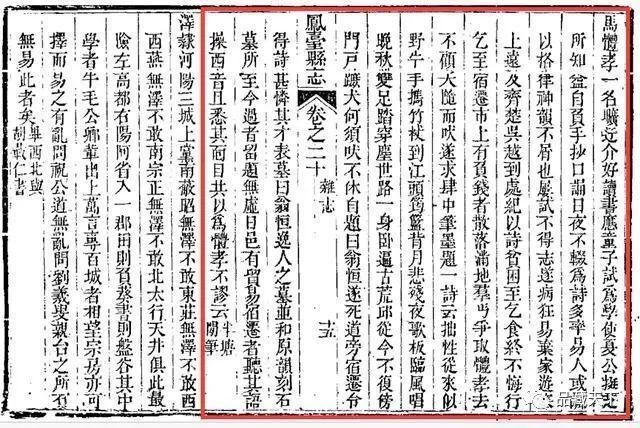 馬體孝一名驥迂介好讀書應童子試為學使夏公擬
所知益自負手抄口誦日夜不輟為詩多率易人或
以格律神韻不屑也屢試不得志遂病狂易棄家遊
上遠及齊楚吳越到處紀以詩貧困至乞食終不悔行
乞至宿遷市上有負錢者散落滿地羣丐爭取體孝去
不顧犬隨而吠遂求肆中筆墨題一詩云拙性從來似
野牛手攜竹杖到江頭籃背月悲殘夜歌板臨風唱
晚秋雙足踏穿塵世路一身臥遍古荒邱從今不復傍
門戸蹶犬何須吠不休自題曰翁恒遂死道旁宿遷令
鳳臺縣志 卷之二十 雜志 十五
得詩甚憐其才表墓曰翁恒逸人之墓並和原韻刻石
墓所至今過者留題無虛日邑有貿易宿遷者聽其語
操西音且悉其面目共以為體孝不謬云 牛塘閒筆
澤隸河陽三城上黨南蔽昭無澤不敢東莊無澤不敢西
西燕無澤不敢南宗正無澤不敢北太行天井俱此最
險左高都右陽阿省入一郡田則負蔡書則盤谷其中
學者牛毛公卿輩出上萬言専百城者相望宗房亦可
擇而易之有亂問祝公道無亂問劉羲叟親台之所有
無易此者矣 畢西北與胡敬仁書
品藏天